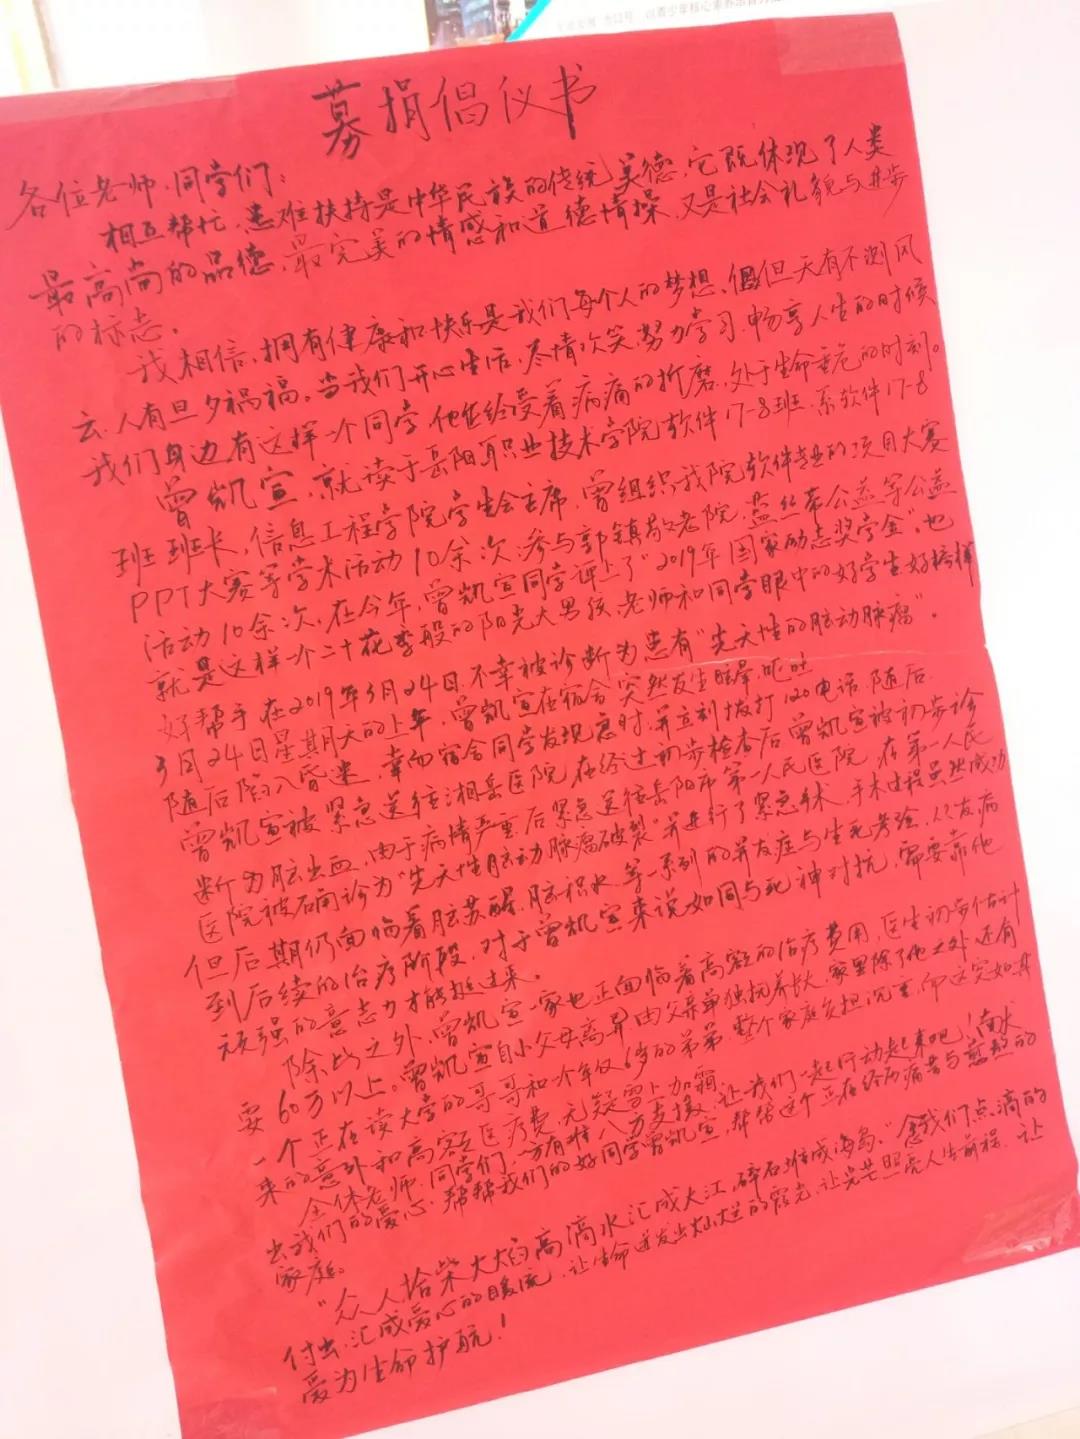 募捐倡仪书
各位老师、同学们：
相互帮忙、患难扶持是中华民族的传统美德，它既体现了人类
最高尚的品德、最完美的情感和道德情操，又是社会礼貌与进步
的标志。
我相信，拥有健康和快乐是我们每个人的梦想，但天有不测风
云，人有旦夕祸福。当我们开心生活，尽情欢笑，努力学习，畅享人生的时候
我们身边有这样一个同学，他在经受着病痛的折磨，处于生命垂危的时刻。
曾凯宣，就读于岳阳职业技术学院软件17-8班，系软件17-8
班班长，信息工程学院学生会主席，曾组织我院软件专业的项目大赛
PPT大赛等学术活动10余次；参与郭镇敬老院，蓝丝带公益等公益
活动10余次，在今年，曾凯宣同学评上了"2019年国家励志奖学金"，也
就是这样一个二十花季般的阳光大男孩，老师和同学眼中的好学生好榜样
好帮手在2019年3月24日，不幸被诊断为患有"先天性的脑动脉瘤"。
3月24日星期天的上午，曾凯宣在宿舍突然发生眩晕，呕吐
随后陷入昏迷，幸而宿舍同学发现及时，并立刻拨打120电话，随后
曾凯宣被紧急送往湘岳医院，在经过初步检查后曾凯宣被初步诊
断为脑出血，由于病情严重，后紧急送往岳阳市第一人民医院，在第一人民
医院被确诊为"先天性脑动脉瘤破裂"并进行了紧急手术，手术过程虽然成功
但后期仍面临着脑苏醒，脑积水等一系列的并发症与生死考验，从发病
到后续的治疗阶段，对于曾凯宣来说如同与死神对抗，需要靠他
顽强的意志力才能挺过来。
除此之外，曾凯宣一家也正面临着高额的治疗费用，医生初步估计
要60万以上。曾凯宣自小父母离异，由父亲单独抚养长，家里除了他之外还有
一个正在读大学的哥哥和个年仅6岁的弟弟，整个家庭负担沉重，而这突如其
来的意外和高额医疗费，无疑雪上加霜
全体老师、同学们，一方有难，八方支援，让我们一起行动起来吧！献
出我们的爱心，帮帮我们的好同学曾凯宣，帮帮这个正在经历痛苦与煎熬的
家庭。
"众人拾柴火焰高，滴水汇成大江，碎石堆成海岛。"愿我们点滴的
付出，汇成爱心的暖流，让生命迸发出灿烂的霞光，让光芒照亮人生前程，让
爱为生命护航！